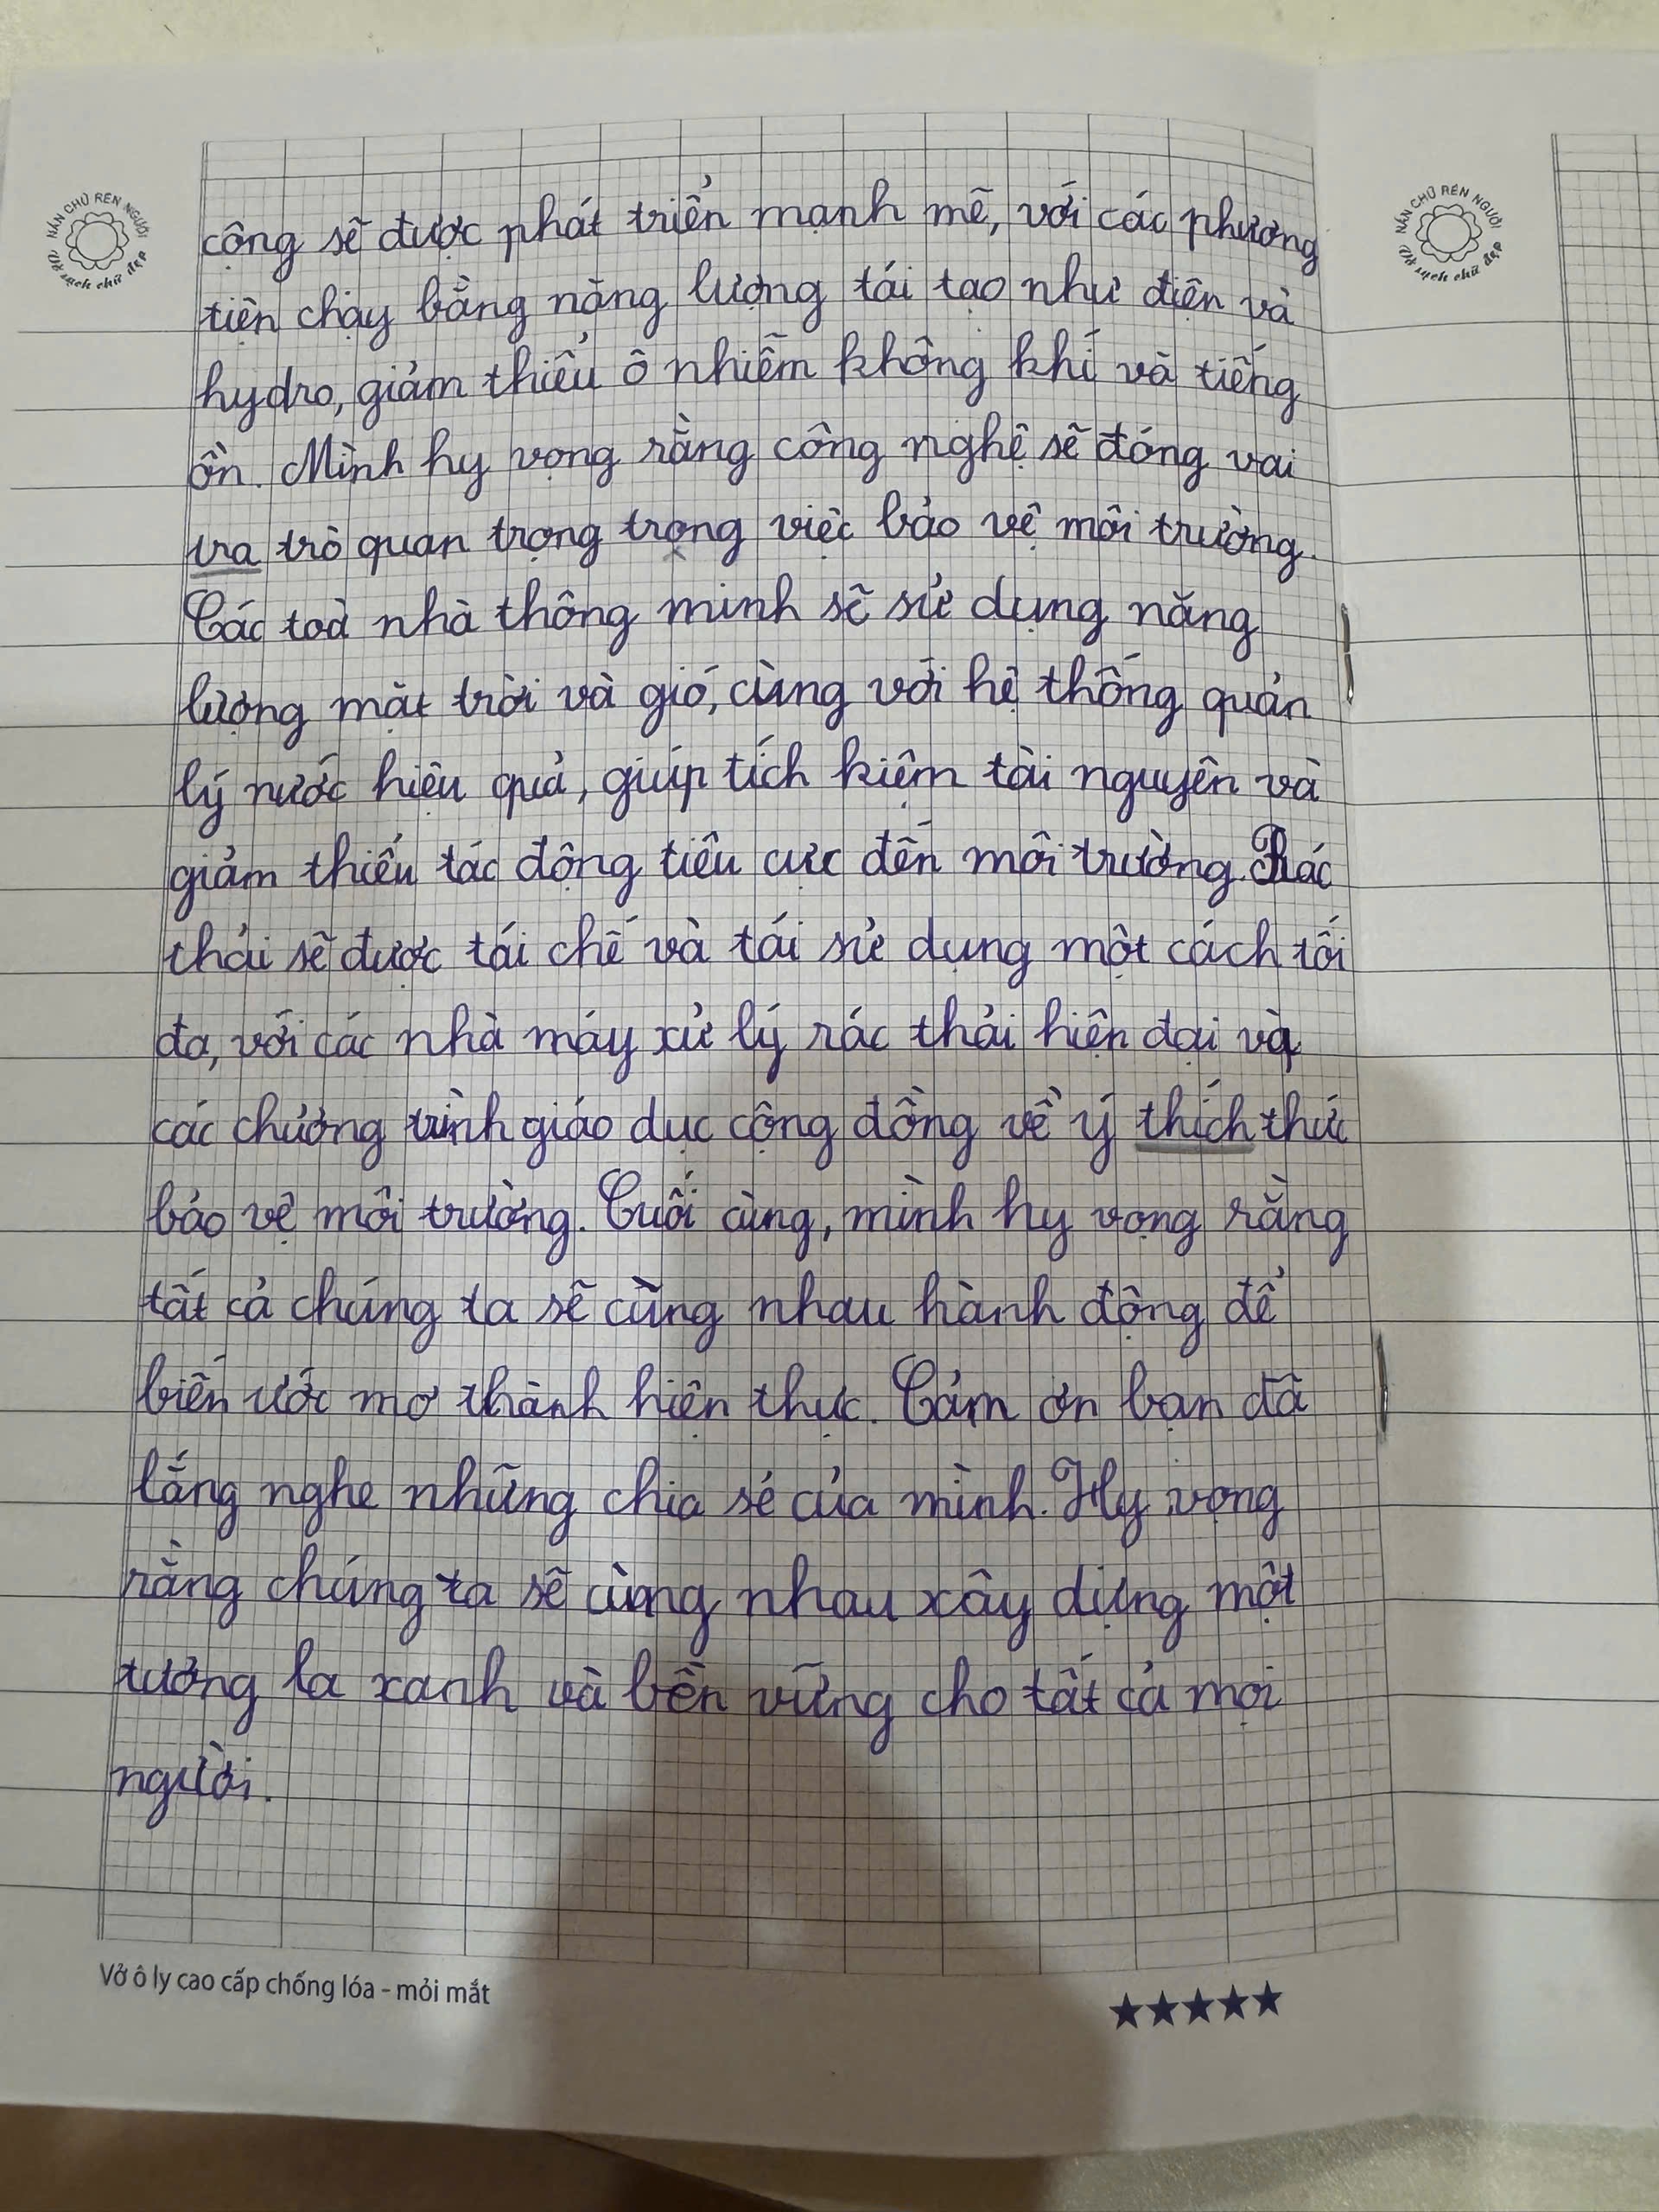 NẮN CHỮ RÈN NGƯỜI
Giữ sạch chữ đẹp
NẮN CHỮ RÈN NGƯỜI
Giữ sạch chữ đẹp
cộng sẽ được phát triển mạnh mẽ, với các phương
tiện chạy bằng năng lượng tái tạo như điện và
hydro, giảm thiểu ô nhiễm không khí và tiếng
ồn. Mình hy vọng rằng công nghệ sẽ đóng vai
tra trò quan trọng trọng việc bảo vệ môi trường.
Các toà nhà thông minh sẽ sử dụng năng
lượng mặt trời và gió, cùng với hệ thống quản
lý nước hiệu quả, giúp tích kiệm tài nguyên và
giảm thiểu tác động tiêu cực đến môi trường. Rác
thải sẽ được tái chế và tái sử dụng một cách tối
đa, với các nhà máy xử lý rác thải hiện đại và
các chương trình giáo dục cộng đồng về ý thích thức
bảo vệ môi trường. Cuối cùng, mình hy vọng rằng
tất cả chúng ta sẽ cùng nhau hành động để
biến ước mơ thành hiện thực. Cảm ơn bạn đã
lắng nghe những chia sẻ của mình. Hy vọng
rằng chúng ta sẽ cùng nhau xây dựng một
tương la xanh và bền vững cho tất cả mọi
người.
Vở ô ly cao cấp chống lóa - mỏi mắt